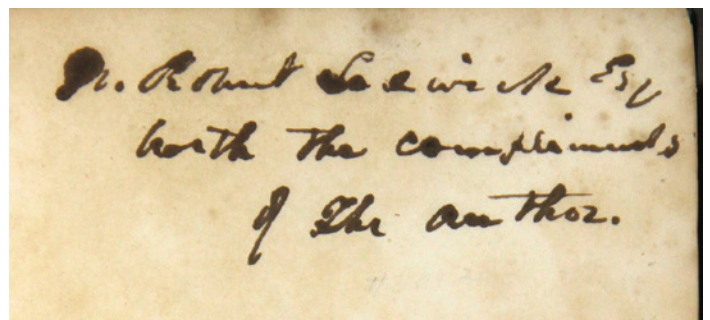 Robert Sedwick Esq
with the compliments
of the author.